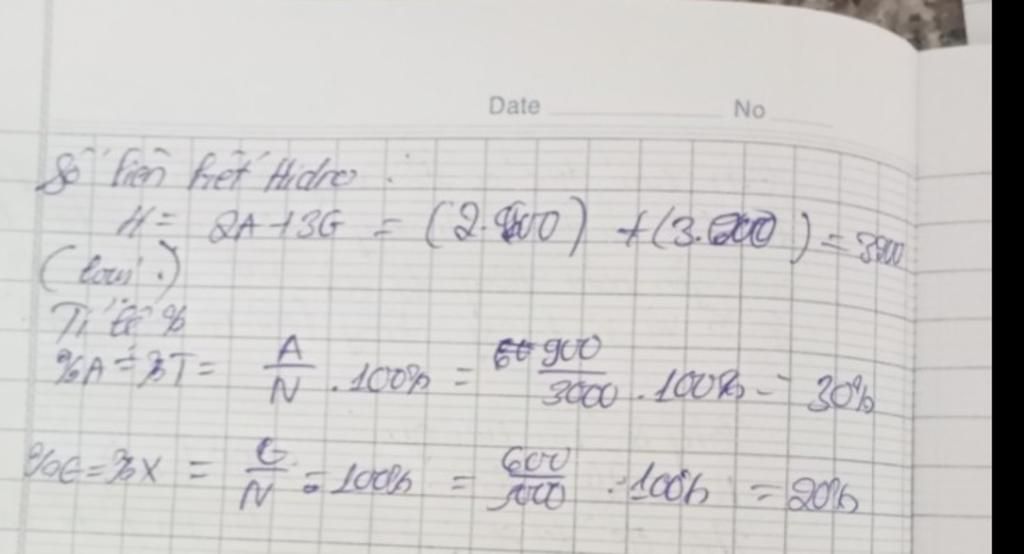 Date No
Số liên kết Hidro :
H = 2A+3G = (2.900) + (3.600) = 3600
(loại.)
Tỉ lệ %
%A = %T = A/N . 100% = 900/3000 . 100% = 30%
%G = %X = G/N = 100% = 600/3000 . 100% = 20%